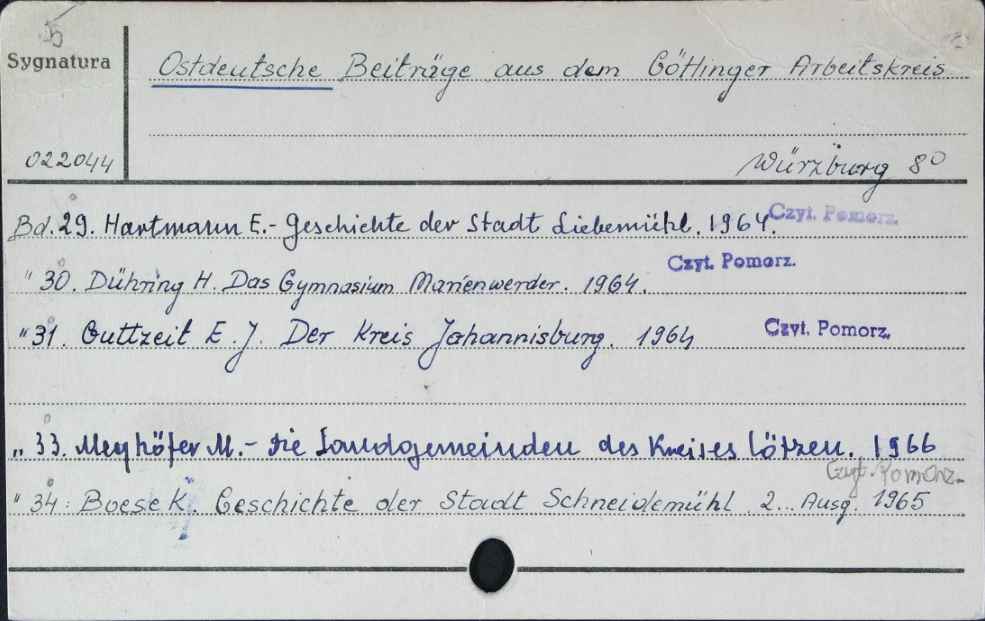 5
Sygnatura
Ostdeutsche Beiträge aus dem Göttinger Arbeitskreis
022044
Würzburg 8°
Bd. 29. Hartmann E.- Geschichte der Stadt Liebemühl. 1964. Czyt. Pomorz.
" 30. Dühring H. Das Gymnasium Marienwerder. 1964. Czyt. Pomorz.
" 31. Guttzeit E. J. Der Kreis Johannisburg. 1964 Czyt. Pomorz.
" 33. Meyhöfer M.- Die Landgemeinden des Kreises Lötzen. 1966
Czyt. Pomorz.
" 34: Boese K. Geschichte der Stadt Schneidemühl. 2. Ausg. 1965